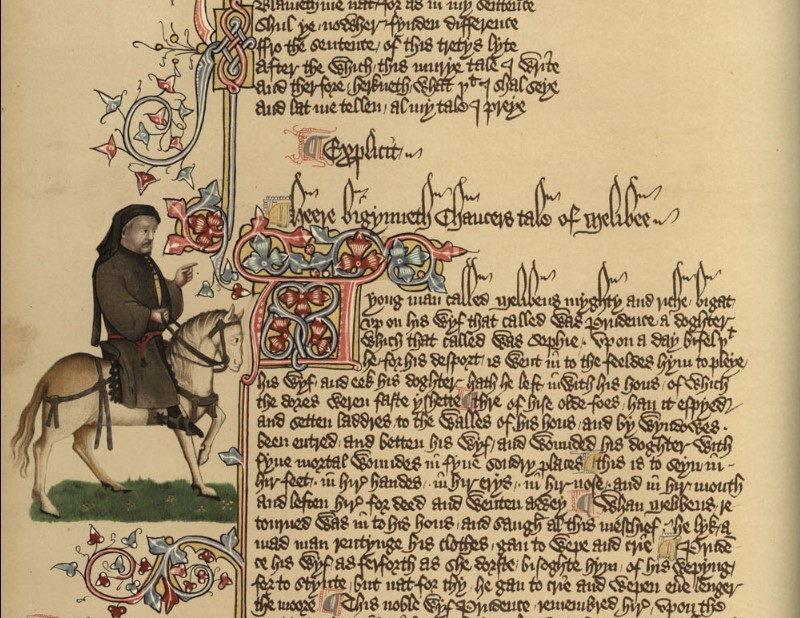 Blameth me nat for as in my sentence
Shul ye nowher fynden difference
ffro the sentence of this tretys lyte
After the which this murye tale I write
And therfore herkneth what yt I shal seye
And lat me tellen al my tale I preye
Explicit
Heere bigynneth Chaucers tale of Melibee
A yong man called Melibeus myghty and riche bigat
vp on his wyf that called was Prudence a doghter
which that called was Sophie / Vpon a day bifel yt
he for his desport is went in to the feeldes hym to pleye
his wyf and eek his doghter hath he left in with his hous of which
the dores weren faste yshette Thre of hise olde foes han it espyed
and setten laddres to the walles of his hous and by wyndowes
been entred and betten his wyf and wounded his doghter with
fyue mortal woundes in fyue sondry places This is to seyn in
hir feet / in hir handes / in hir erys / in hir nose / and in hir mouth
and leften hir for deed and wenten awey Whan Melibeus re
tourned was in to his hous and saugh al this meschief / he lyk a
mad man rentynge his clothes / gan to wepe and crie Pruden
ce his wyf as ferforth as she dorste bisoghte hym of his wepyng
for to stynte / but nat for thy he gan to crie and wepen euer lenger
the moore This noble wyf Prudence / remembred hir / vpon the